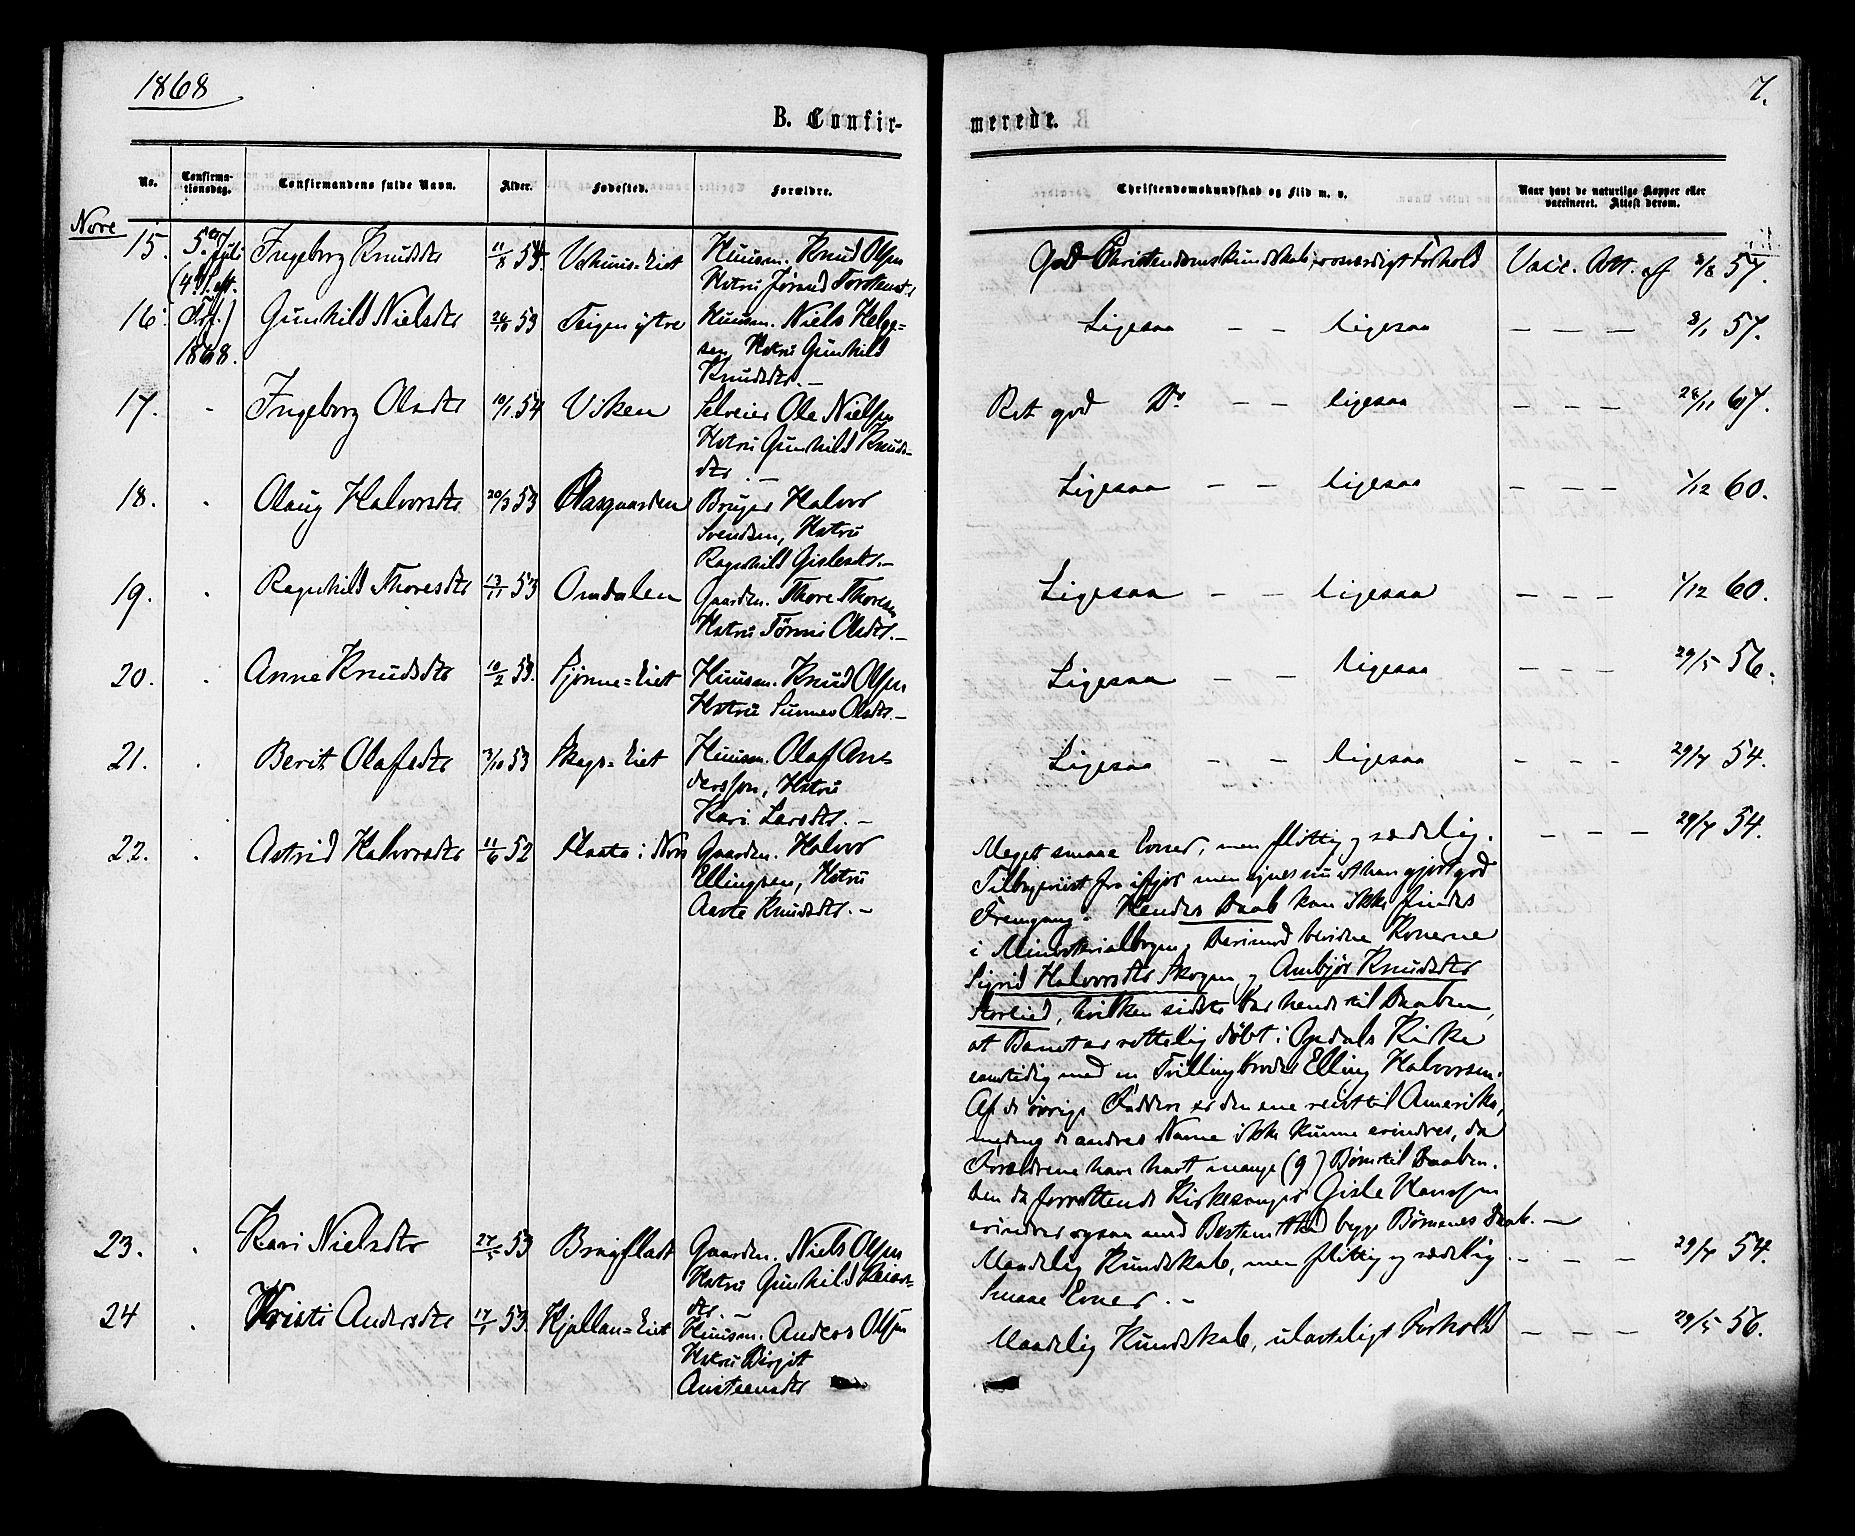 1868
7.
B. Confir-
merede.
No.
Confirma-
tionsdag.
Confirmandens fulde Navn.
Alder.
Fødested.
Forældre.
Christendomskundskab og Flid m. v.
Naar havt de naturlige Kopper eller
vaccineret. Attest derom.
Nore
15. 5te Juli Ingeborg Knudsdtr 11/8 54. Huusm. Knud Olsen
God Christendomskundskab, Forhold Vacc. Att. af 57.
Hstru Jørand
16. 1868. Gunhild Nielsdtr 53 Teigen ystre Huusm. Niels Helge-
Ligesaa — — ligesaa — — — 8/1 57.
sen, Hstru Gunhild
Knudsdtr. —
17. Ingeborg Olsdtr 10/1 54 Viken Selveier Ole Nielsen
Ret god Do — — ligesaa — — — 28/11 67.
Hstru Gunhild Knuds-
dtr. —
18. Olaug Halvorsdtr 20/3 53 Aasgaarden Bruger Halvor
Ligesaa — — ligesaa — — — 1/12 60.
Svendsen, Hstru
Ragnhild Gislesdtr. —
19. Ragnhild Thoresdtr 13/11 53 Omdalen Gaardm. Thore Thoresen
Ligesaa — — ligesaa — — — 1/12 60.
Hstru Tørris Olsdtr. —
20. Anne Knudsdtr 10/2 53. Sjønne-Eiet Huusm. Knud Olsen
Ligesaa — — ligesaa — — — 29/5 56.
Hstru Olsdtr. —
21. Berit Olafsdtr 3/10 53 Skogs-Eiet Huusm. Olaf An-
Ligesaa — — ligesaa — — — 29/7 54.
dersson, Hstru
Kari Larsdtr. —
22. Astrid Halvorsdtr 11/6 52 i Nore Gaardm. Halvor
Ellingsen, Hstru
Aaste Knudsdtr. —
Meget smaae Evner, men flittig og sædelig. — — — 29/7 54.
Tilbageviist fra ifjor men synes nu at have gjort god
Fremgang. Hendes Daab kan ikke findes
i Ministerialbogen, derimod bevidne Konerne
Sigrid Halvorsdtr Skogen og Ambjør Knudsdtr
Storlied, hvilken sidste bar hende til Daaben,
at Barnet er rettelig døbt i Opdals Kirke
samtidig med en Tvillingbroder Elling Halvorsen.
Af de øvrige Faddere er den ene reist til Amerika,
medens de andres Navne ikke kunne erindres, da
Forældrene have havt mange (9) Børn til Daaben.
Den da forrettende Kirkesanger Gisle Hanssen
erindrer ogsaa med Bestemthed begge Børnenes Daab. —
23. Kari Nielsdtr 27/5 53 Bragstadt Gaardm. Niels Olsen
Maadelig Kundskab, men flittig og sædelig. — — — 29/7 54.
Hstru Gunhild Reiers-
dtr. —
Smaae Evner. —
24 Kristi Andersdtr 17/1 53. Kjallan-Eiet Huusm. Anders Olsen
Maadelig Kundskab, ulasteligt Forhold — — — 29/5 56.
Hstru Birgit
Austeensdtr